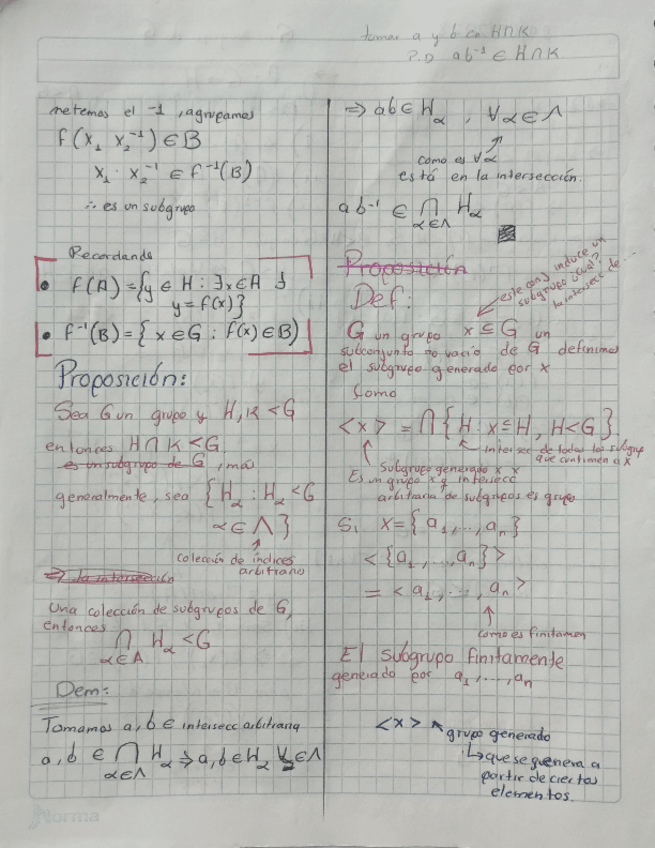 tomar a y b en H∩K
P.D ab⁻¹ ∈ H∩K
metemos el -1, agrupamos
f(x₁ x₂⁻¹) ∈ B
x₁ · x₂⁻¹ ∈ f⁻¹(B)
∴ es un subgrupo
Recordando
• f(A) = {y ∈ H : ∃x ∈ A
y = f(x)}
• f⁻¹(B) = { x ∈ G : f(x) ∈ B}
Proposición:
Sea G un grupo y H, K < G
entonces H ∩ K < G
es un subgrupo de G, mas
generalmente, sea {H_α : H_α < G
α ∈ Λ}
Colección de índices
arbitrario
⇒ la intersección
Una colección de subgrupos de G,
entonces
∩ H_α < G
α ∈ Λ
Dem:
Tomamos a, b ∈ intersecc arbitraria
a, b ∈ ∩ H_α ⇒ a, b ∈ H_α ∀ ∈ Λ
α ∈ Λ
⇒ ab ∈ H_α , ∀α ∈ Λ
como es ∀α
está en la intersección.
ab⁻¹ ∈ ∩ H_α
α ∈ Λ
Proposición
Def:
este conj induce un
subgrupo usual?
la intersecc de...
G un grupo x ⊆ G un
subconjunto no vacío de G definimos
el subgrupo generado por x
como
<x> = ∩{H : x ⊆ H, H < G}
intersec de todos los subgrup
que contienen a x
Subgrupo generado x x
Es un grupo x q intersecc
arbitraria de subgrupos es grupo
Si x = {a₁, ..., aₙ}
<{a₁, ..., aₙ}>
= <a₁, ..., aₙ>
como es finitamen
El subgrupo finitamente
generado por a₁, ..., aₙ
<x> grupo generado
↳ que se genera a
partir de ciertos
elementos.
Norma